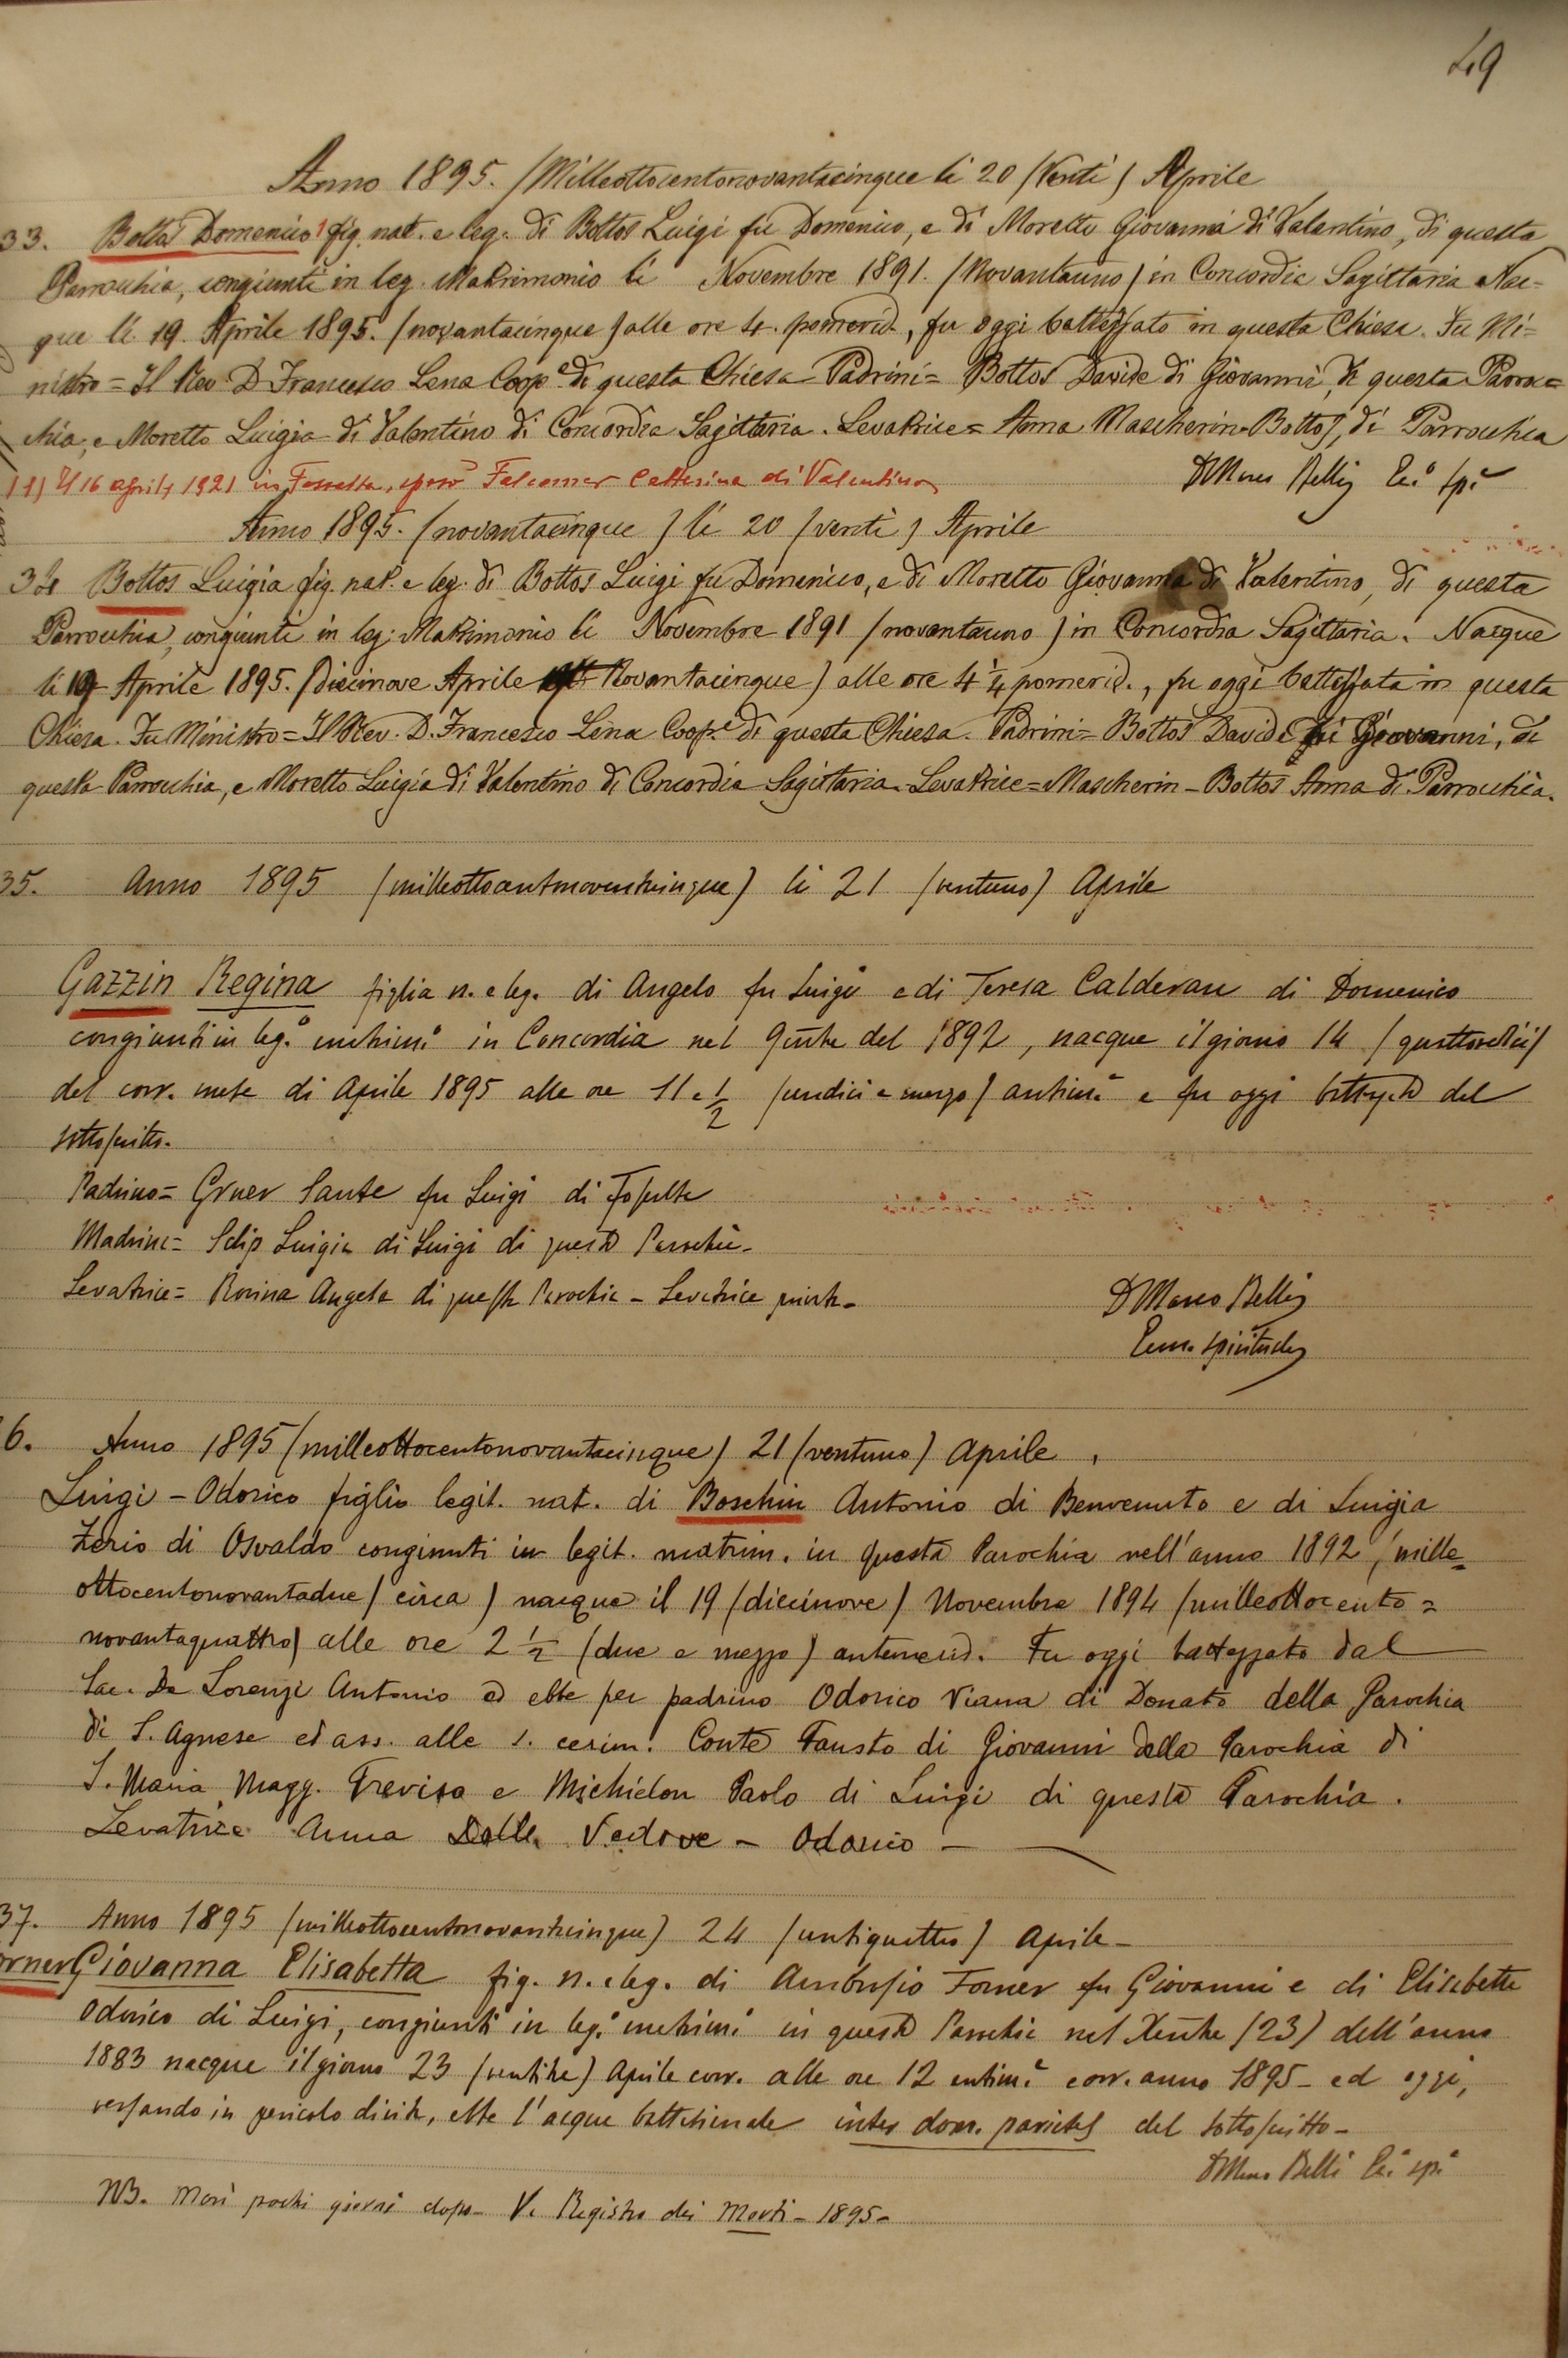 49
Anno 1895. (Milleottocentonovantacinque li 20 (Venti) Aprile
33. Bottos Domenico 1 fig. nat. e leg. di Bottos Luigi fu Domenico, e di Moretto Giovanna di Valentino, di questa
Parrochia, congiunti in leg. Matrimonio li Novembre 1891. (Novantauno) in Concordia Sagittaria Nac=
que li 19. Aprile 1895. (novantacinque) alle ore 4. pomerid., fu oggi battezzato in questa Chiesa. Fu Mi=
nistro = Il Rev. D. Francesco Lena Coop.e di questa Chiesa - Padrini = Bottos Davide di Giovanni, di questa Parro=
chia, e Moretto Luigia di Valentino di Concordia Sagittaria. Levatrice = Anna Mascherin-Bottos, di Parrochia
(1) Il 16 aprile 1921 in Fossalta, sposò Falcomer Catterina di Valentino
D Marco Belli Ec.o Sp.e
Anno 1895. (novantacinque) li 20 (venti) Aprile
34 Bottos Luigia fig. nat. e leg. di Bottos Luigi fu Domenico, e di Moretto Giovanna di Valentino, di questa
Parrochia, congiunti in leg. Matrimonio li Novembre 1891 (novantauno) in Concordia Sagittaria. Nacque
li 19 Aprile 1895. (diecinove Aprile Novantacinque) alle ore 4 1/4 pomerid., fu oggi battezzata in questa
Chiesa. Fu Ministro = Il Rev. D. Francesco Lena Coop.e di questa Chiesa. Padrini = Bottos Davide di Giovanni, di
questa Parrochia, e Moretto Luigia di Valentino di Concordia Sagittaria. Levatrice = Mascherin - Bottos Anna di Parrochia.
35. Anno 1895 (milleottocentonovantacinque) li 21 (ventuno) Aprile
Gazzin Regina figlia n. e leg. di Angelo fu Luigi e di Teresa Calderan di Domenico
congiunti in leg.o matrim.o in Concordia nel 9mbre del 1892, nacque il giorno 14 (quattordici)
del corr. mese di Aprile 1895 alle ore 11 e 1/2 (undici e mezzo) antim.e e fu oggi battezzata dal
sottoscritto.
Padrino = Gruer Sante fu Luigi di Fossalta
Madrina = Selip Luigia di Luigi di questa Parochia -
Levatrice = Rovina Angela di questa Parochia - Levatrice privata -
D Marco Belli
Econ. spirituale
36. Anno 1895 (milleottocentonovantacinque) 21 (ventuno) Aprile.
Luigi - Odorico figlio legit. nat. di Boschin Antonio di Benvenuto e di Luigia
Zerio di Osvaldo congiunti in legit. matrim. in questa Parochia nell'anno 1892 (mille=
ottocentonovantadue) circa) nacque il 19 (diecinove) Novembre 1894 (milleottocento=
novantaquattro) alle ore 2 1/2 (due e mezzo) antemerid. Fu oggi battezzato dal
Sac. De Lorenzi Antonio ed ebbe per padrino Odorico Viana di Donato della Parochia
di S. Agnese ed ass. alle s. cerim. Conte Fausto di Giovanni della Parochia di
S. Maria Magg. Treviso e Michielon Paolo di Luigi di questa Parochia.
Levatrice Anna Dalle Vedove - Odorico -
37. Anno 1895 (milleottocentonovantacinque) 24 (ventiquattro) Aprile -
Forner Giovanna Elisabetta fig. n. e leg. di Ambrosio Forner fu Giovanni e di Elisabetta
Odorico di Luigi, congiunti in leg.o matrim.o in questa Parochia nel Xmbre (23) dell'anno
1883 nacque il giorno 23 (ventitre) Aprile corr. alle ore 12 antim.e corr. anno 1895 - ed oggi,
versando in pericolo di vita, ebbe l'acqua battesimale inter dom. parietes dal sottoscritto -
D Marco Belli Ec.o sp.e
NB. Morì pochi giorni dopo - V. Registro dei Morti - 1895 -